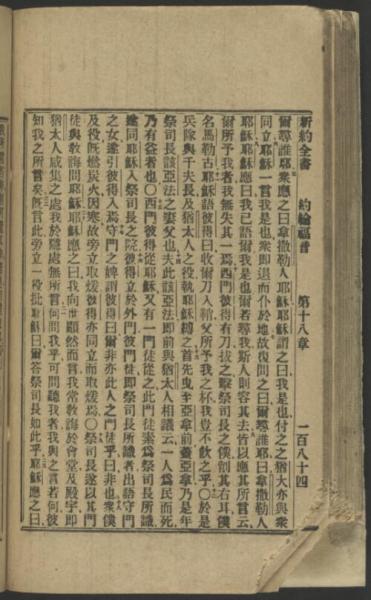 新約全書　約翰福音　第十八章　一百八十四
爾尋誰耶衆應之曰拿撒勒人耶穌耶穌謂之曰我是也付之之猶大亦與衆
同立耶穌一言我是也衆卽退而仆於地故復問之曰爾尋誰耶曰拿撒勒人
耶穌耶穌應曰我已語爾我是也爾若尋我斯人則容其去皆以應其所言云
爾所予我者我無失其一焉西門彼得有刀拔之擊祭司長之僕削其右耳僕
名馬勒古耶穌語彼得曰收爾刀入鞘父所予我之杯我豈不飲之乎〇於是
兵隊與千夫長及猶太人之役執耶穌縛之首先曳至亞拿前蓋亞拿乃是年
祭司長該亞法之妻父也夫此該亞法卽前與猶太人相議云一人爲民而死
乃有益者也〇西門彼得從耶穌又有一門徒從之此門徒素爲祭司長所識
遂同耶穌入祭司長之院彼得立於外門彼門徒卽祭司長所識者出語守門
之女遂引彼得入焉守門之婢謂彼得曰爾非亦此人之門徒乎曰非也衆僕
及役旣燃炭火因寒故旁立取煖彼得亦同立而取煖焉〇祭司長遂以其門
徒與教誨問耶穌耶穌應之曰我向世顯然而言我常教誨於會堂及殿宇卽
猶太人咸集之處我於隱處無所言何問我乎可問聽我者我與之言若何彼
知我之所言矣旣言此旁立一役批耶穌曰爾答祭司長如此乎耶穌應之曰